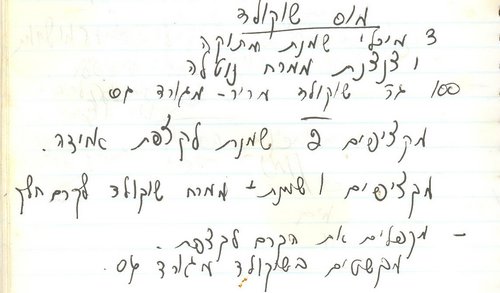 מוס שוקולד
3 מיכלי שמנת מתוקה
1 צנצנת ממרח נוטלה
100 גר' שוקולד מריר - מגורד גס
מקציפים 2 שמנת לקצפת אמידה.
מקציפים 1 שמנת + ממרח שוקולד לקרם חלק.
- מקפלים את הקרם לקצפת.
מקשטים בשוקולד מגורד גס.